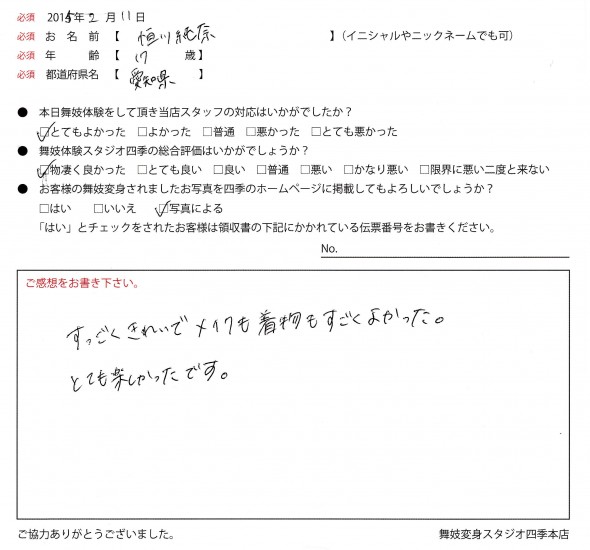 必須 2015年2月11日
必須 お名前【 恒川純奈 】(イニシャルやニックネームでも可)
必須 年齢【 17 歳】
必須 都道府県名【 愛知県 】
● 本日舞妓体験をして頂き当店スタッフの対応はいかがでしたか？
☑とてもよかった □よかった □普通 □悪かった □とても悪かった
● 舞妓体験スタジオ四季の総合評価はいかがでしょうか？
☑物凄く良かった □とても良い □良い □普通 □悪い □かなり悪い □限界に悪い二度と来ない
● お客様の舞妓変身されましたお写真を四季のホームページに掲載してもよろしいでしょうか？
□はい □いいえ ☑写真による
「はい」とチェックをされたお客様は領収書の下記にかかれている伝票番号をお書きください。
No.
ご感想をお書き下さい。
すっごくきれいでメイクも着物もすごくよかった。
とても楽しかったです。
ご協力ありがとうございました。 舞妓変身スタジオ四季本店